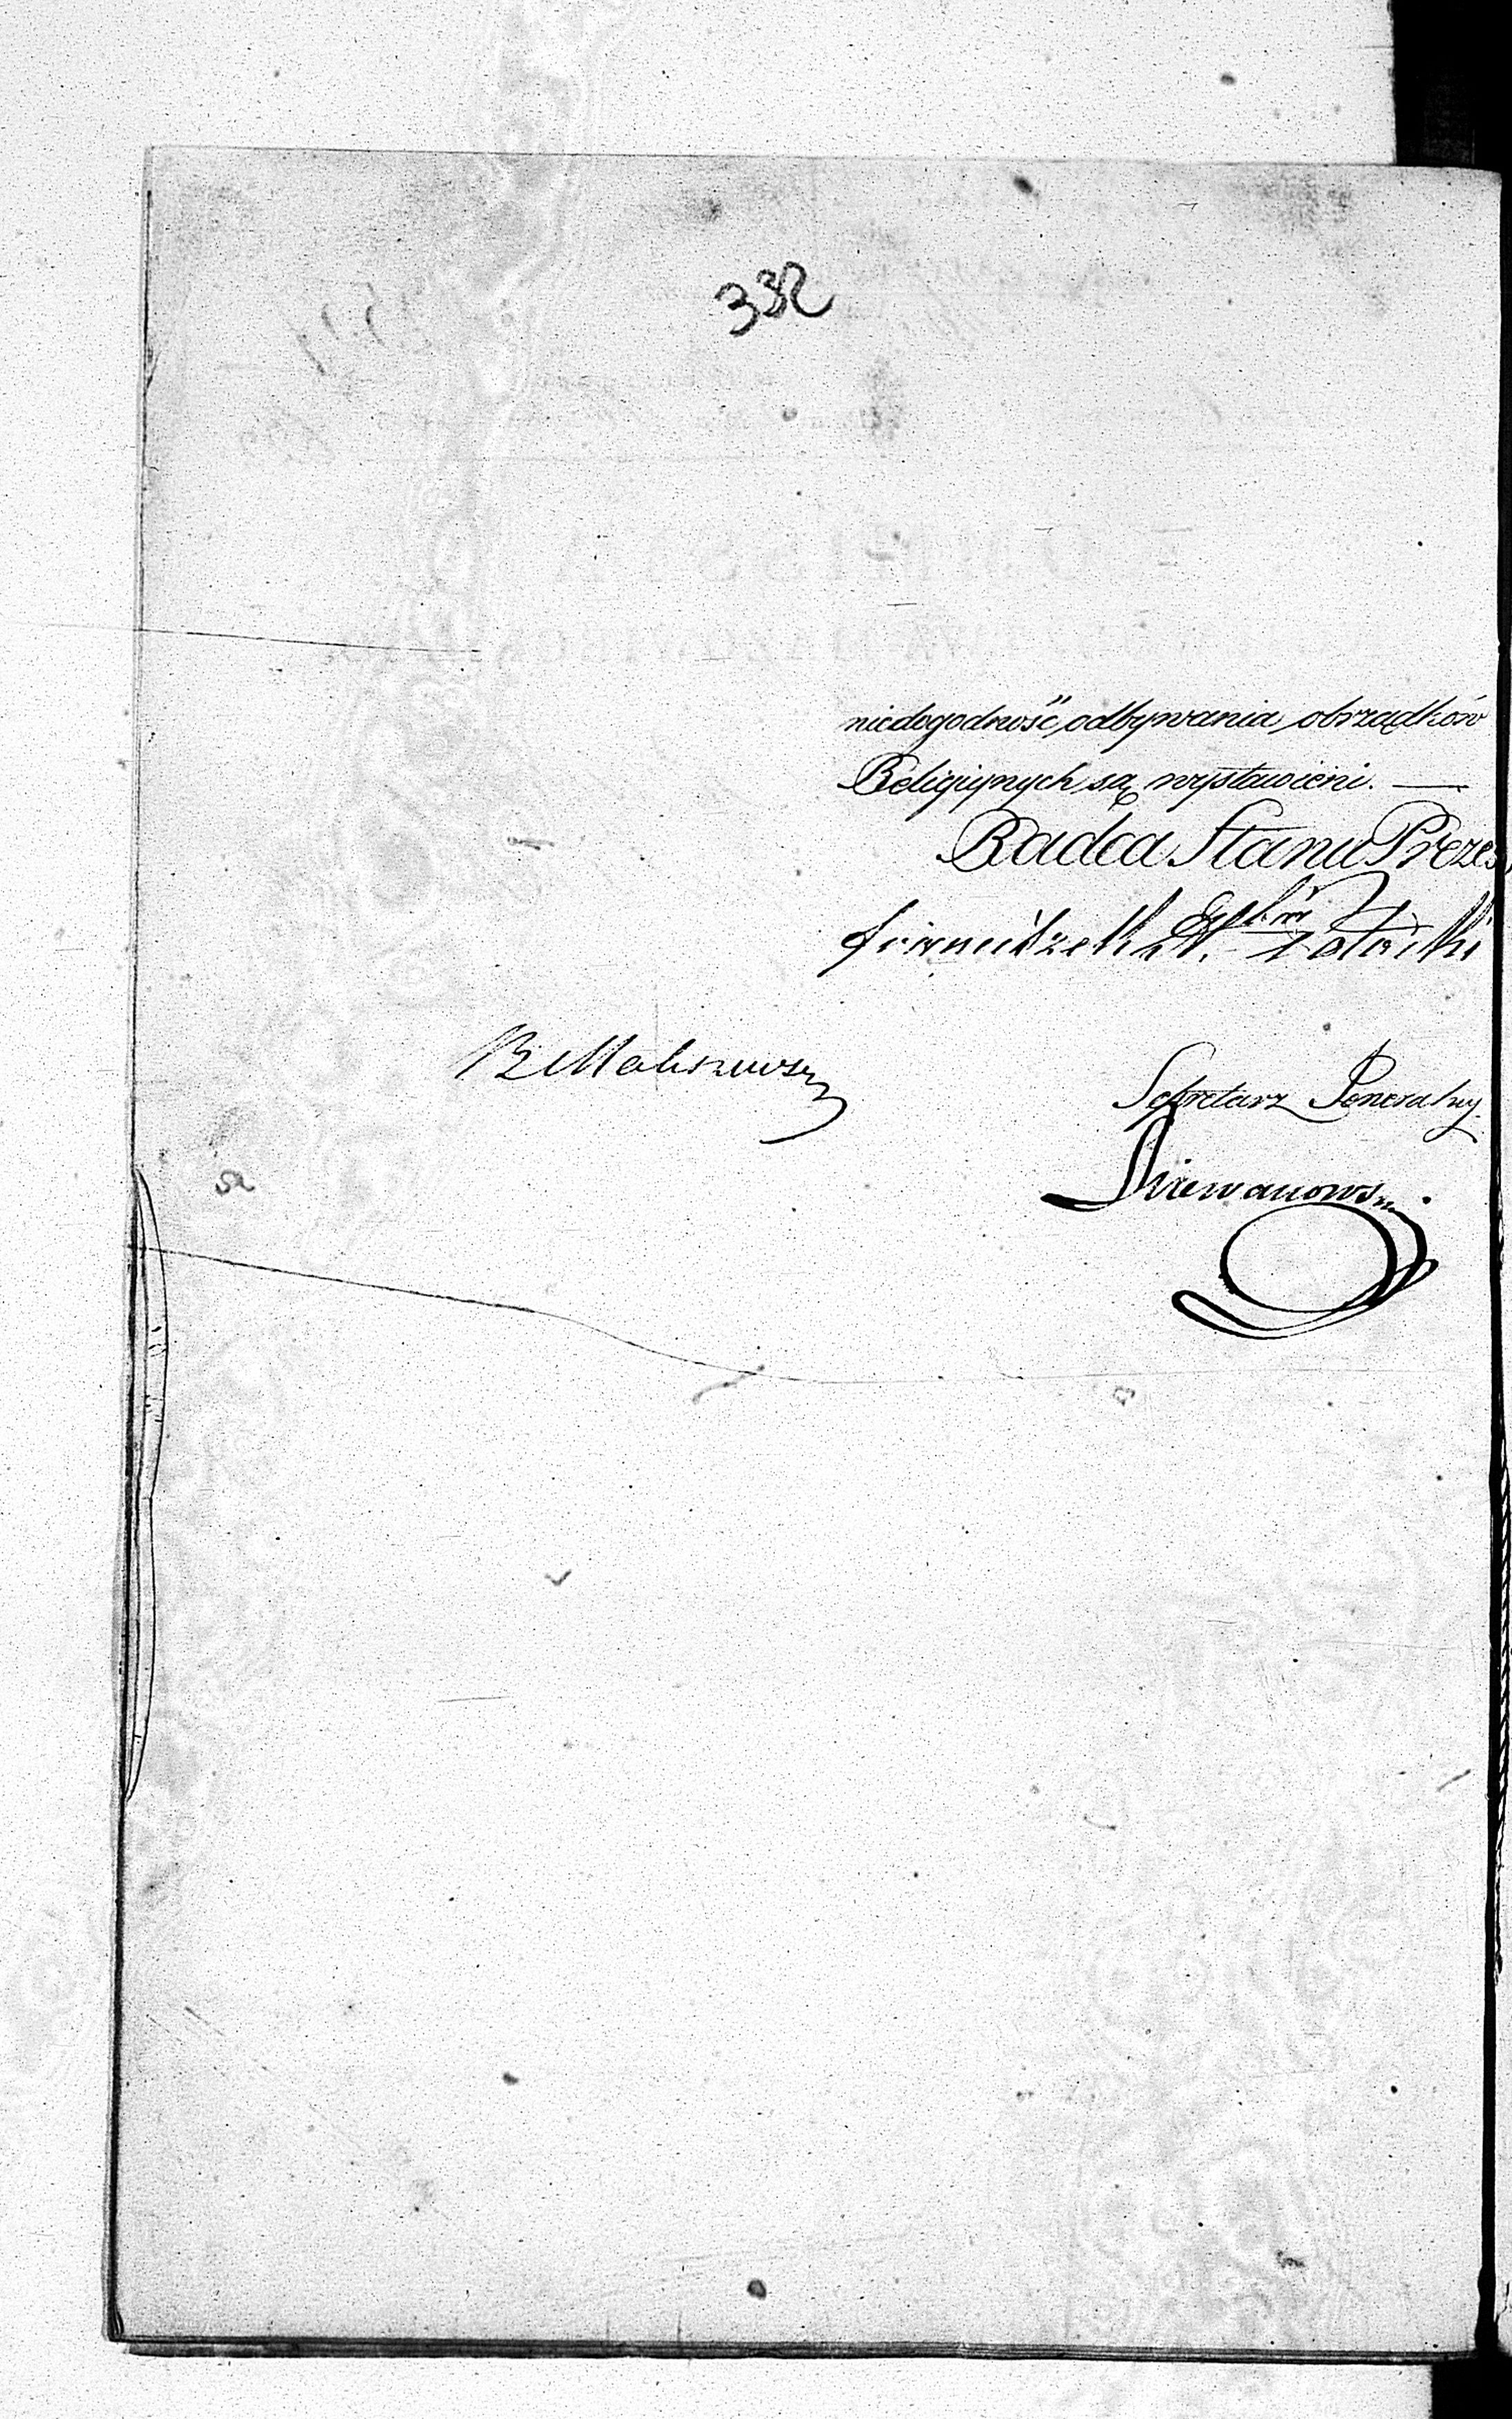 332
niedogodność odbywania obrządków
Religiynych są wystawieni. —
Radca Stanu Prezes
Franciszek Potocki
Sekretarz Jeneralny